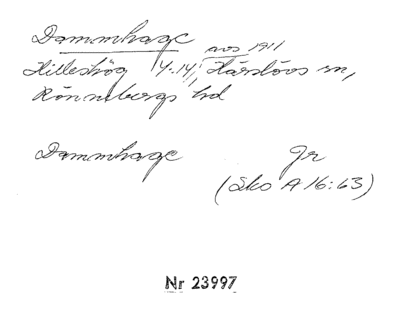 Dammhage avs 1911
Hilleshög 4.14, Härslövs sn,
Rönnebergs hd
Dammhage Jr
(Sko A 16:63)
Nr 23997